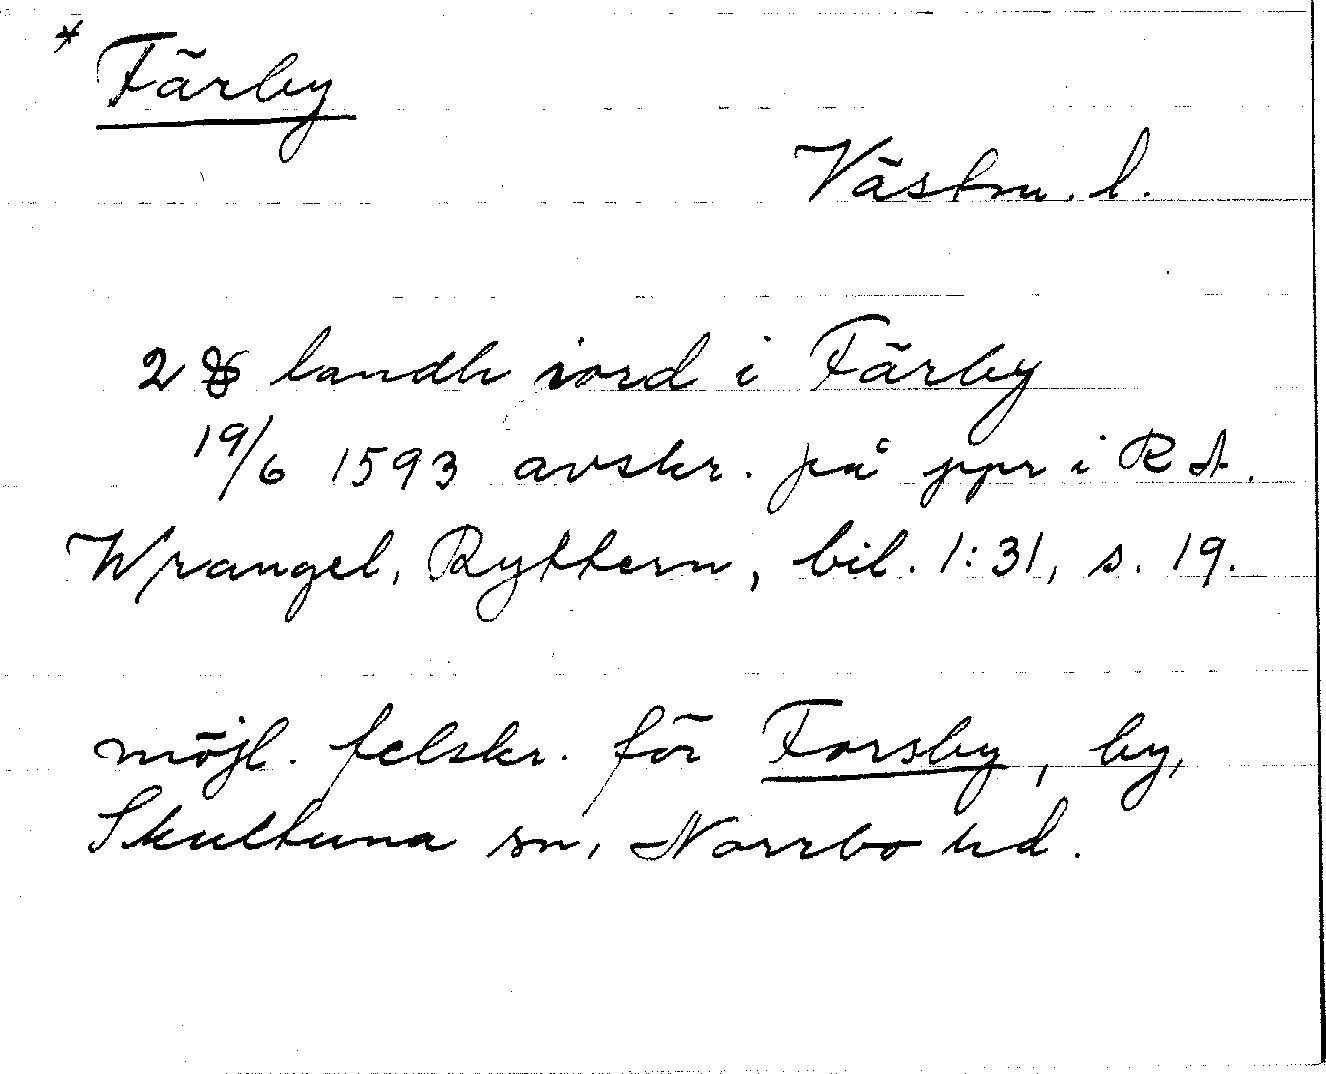 * Färby
Västm. l.
2 landh iord i Färby
19/6 1593 avskr. på ppr i RA.
Wrangel, Ryttern, bil. 1:31, s. 19.
möjl. felskr. för Forsby, by,
Skultuna sn, Norrbo hd.